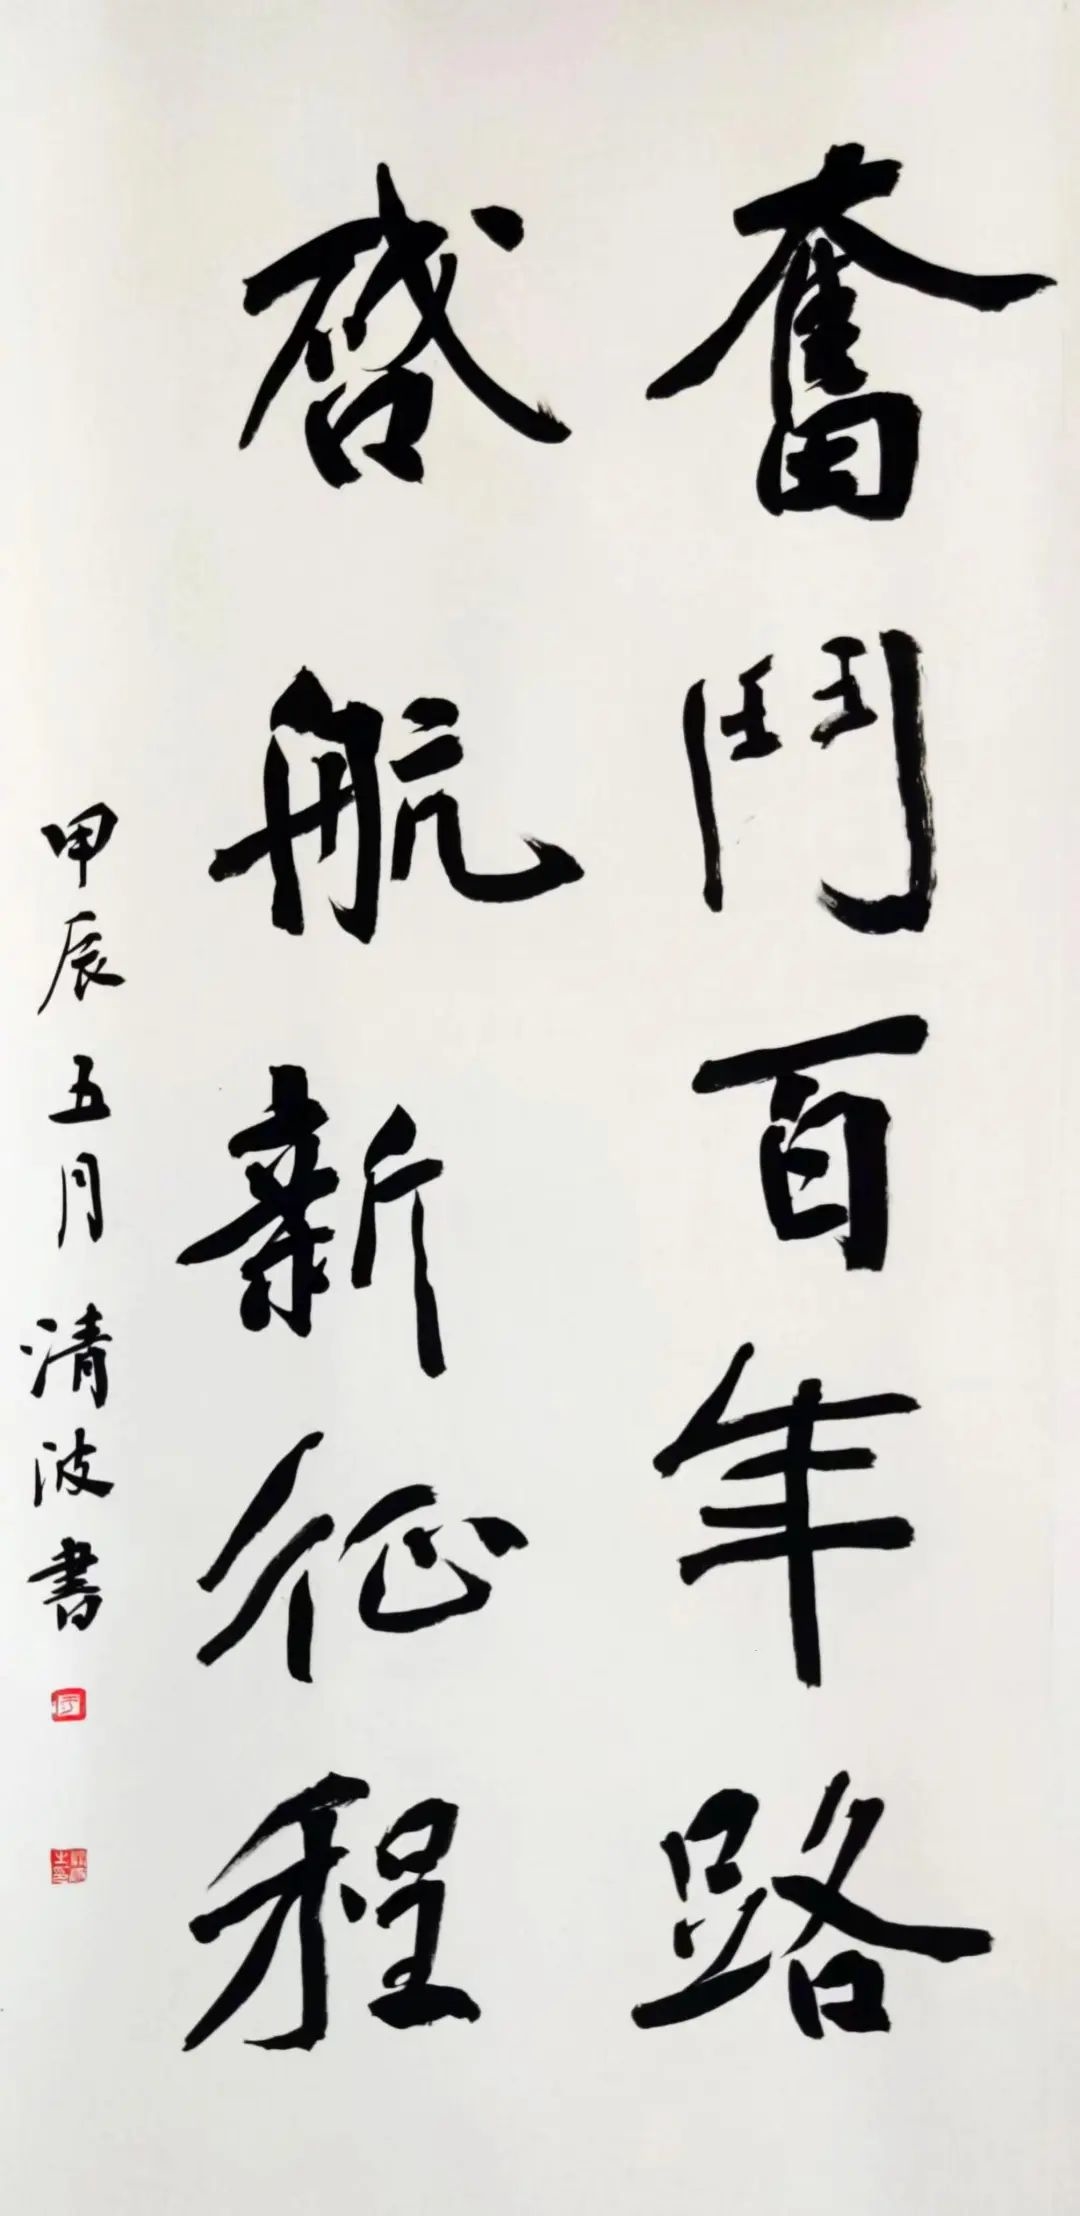 奮鬥百年路
啓航新征程
甲辰五月清波書